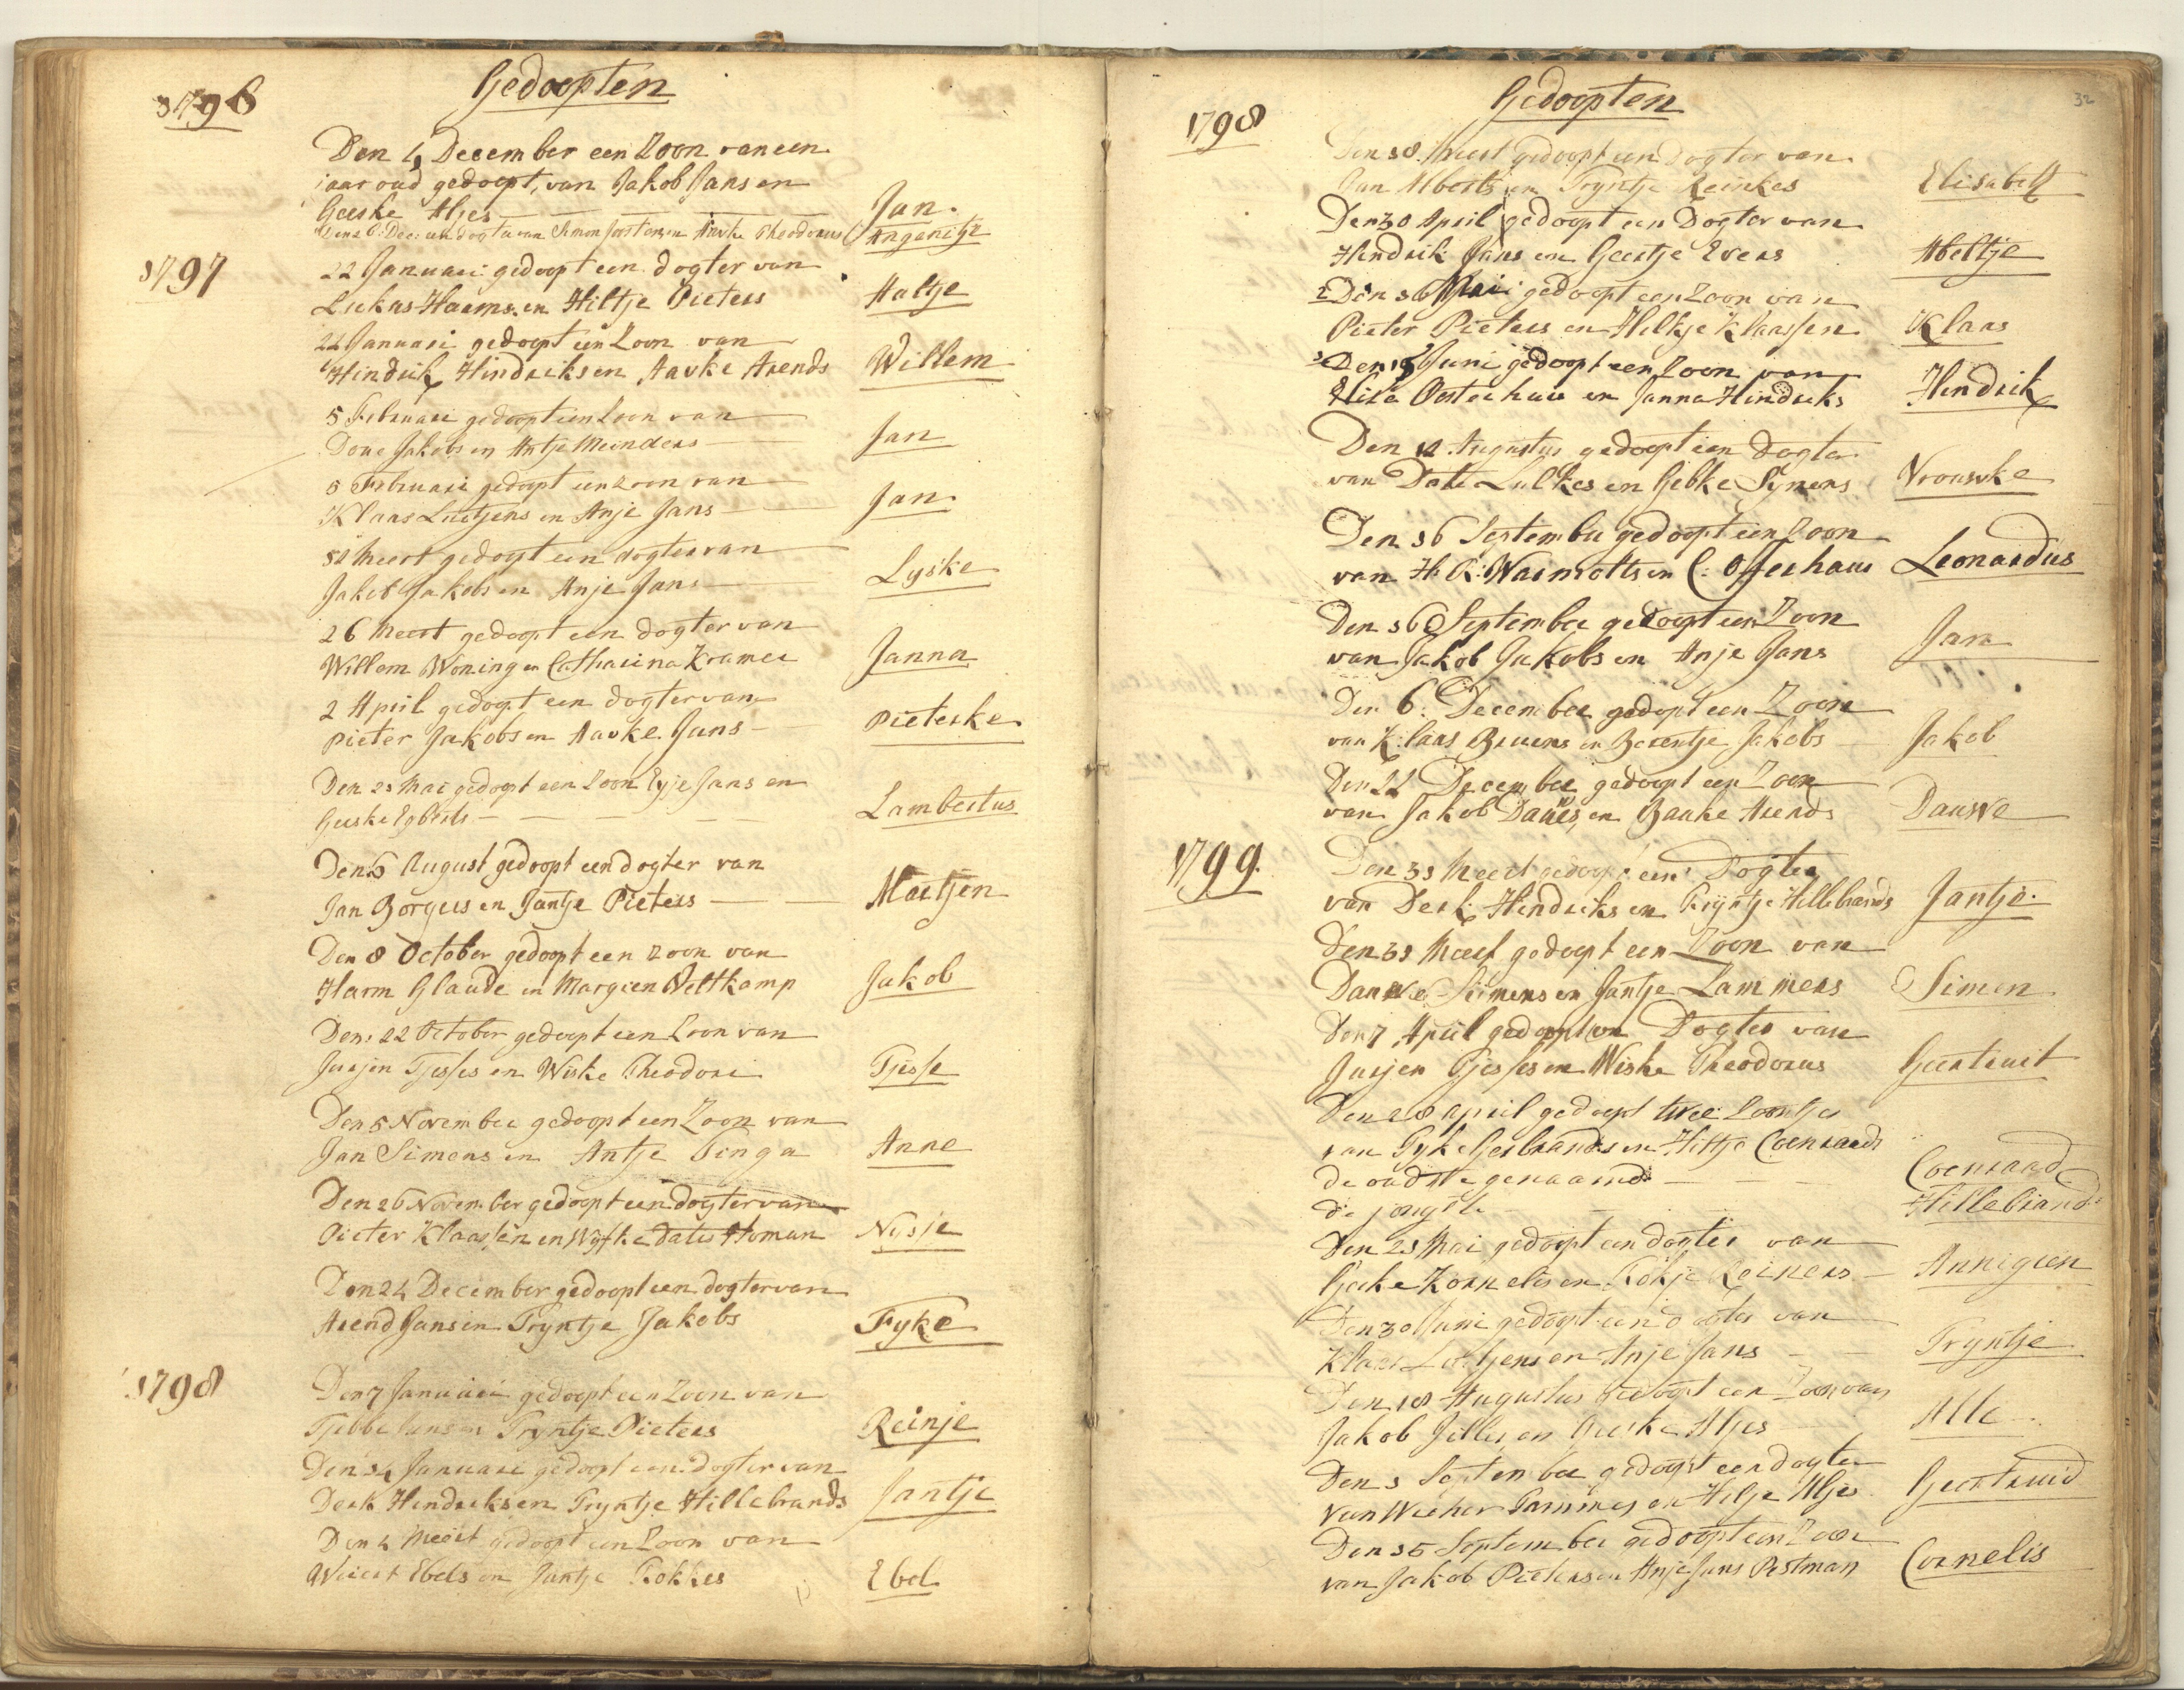 1796
Gedoopten
Den 4 December een Zoon van een
jaar oud gedoopt, van Jakob Jans en
Geeske Aljes Jan.
Den 26 Dec: een dogter van Simon Joosten en Aavke Theodorus Anganitje
1797
22 Januari gedoopt een dogter van
Lukas Harms en Hiltje Pieters Aaltje
22 Januari gedoopt een Zoon van
Hindrik Hindriks en Aavke Arends Willem
5 Februari gedoopt een Zoon van
Doue Jakobs en Antje Meinders Jan
5 Februari gedoopt een zoon van
Klaas Luitjens en Anje Jans Jan
12 Meert gedoopt een dogter van
Jakob Jakobs en Anje Jans Lyske
26 Meert gedoopt een dogter van
Willem Woning en Catharina Kramer Janna
2 April gedoopt een dogter van
Pieter Jakobs en Aavke Jans Pieterke
Den 21 Mai gedoopt een Zoon Eyje Jans en
Geeske Egberts Lambertus
Den 6 August gedoopt een dogter van
Jan Borgers en Jantje Pieters Martjen
Den 8 October gedoopt een zoon van
Harm Glaude en Margien Veltkamp Jakob
Den: 22 October gedoopt een Zoon van
Jurjen Tjesses en Wiske Theodori Tjesse
Den 5 November gedoopt een Zoon van
Jan Simens en Antje Tinga Anne
Den 26 November gedoopt een dogter van
Pieter Klaassen en Wyfke Dates Homan Nysje
Den 24 December gedoopt een dogter van
Arend Jans en Tryntje Jakobs Fyke
1798
Den 7 Januari gedoopt een Zoon van
Tjebbe Jans en Tryntje Pieters Reinje
Den 14 Januari gedoopt een dogter van
Derk Hendriks en Tryntje Hillebrands Jantje
Den 4 Meert gedoopt een Zoon van
Weiert Ebels en Jantje Fokkes Ebel
32
1798
Gedoopten
Den 18 Meert gedoopt een Dogter van
Jan Alberts en Tryntje Reinkes Elisabeth
Den 30 April gedoopt een Dogter van
Hindrik Jans en Geertje Evers Abeltje
Den 16 Mai gedoopt een Zoon van
Pieter Pieters en Hilkje Klaassen Klaas
Den 15 Juni gedoopt een Zoon van
Oosterhuis en Janna Hindriks Hendrik
Den 12 Augustus gedoopt een Dogter
van Date Lulkes en Gebke Symens Vrouwke
Den 16 September gedoopt een Zoon
van H: R: Warmolts en C: Offerhaus Leonardus
Den 16 September gedoopt een Zoon
van Jakob Jakobs en Anje Jans Jan
Den 6: December gedoopt een Zoon
van Klaas Bruens en Barentje Jakobs Jakob
Den 22 December gedoopt een Zoon
van Jakob Dauwes en Bauke Arends Dauwe
1799.
Den 31 Meert gedoopt een Dogter
van Derk Hindriks en Trijntje Hillebrands Jantje.
Den 31 Meert gedoopt een Zoon van
Dauwe Simens en Jantje Lammers Simen
Den 7 April gedoopt een Dogter van
Jurjen Tjesses en Wiske Theodorus Geertruit
Den 28 April gedoopt twee Zoontjes
van Fyke Gerbrands en Hiltje Coenraads
de oudste genaamd Coenraad
de jongste Hillebrand
Den 25 Mai gedoopt een dogter van
Geeke Kornelis en Fokje Reiners Annigien
Den 30 Juni gedoopt een dogter van
Klaas Luitjens en Anje Jans Tryntje
Den 18 Augustus gedoopt een Zoon van
Jakob Jilles en Geeske Aljes Alle
Den 1 September gedoopt een dogter
van Wicher Tammes en Hilje Aljes Geertruid
Den 15 September gedoopt een Zoon
van Jakob Pieters en Anje Jans Postman Cornelis